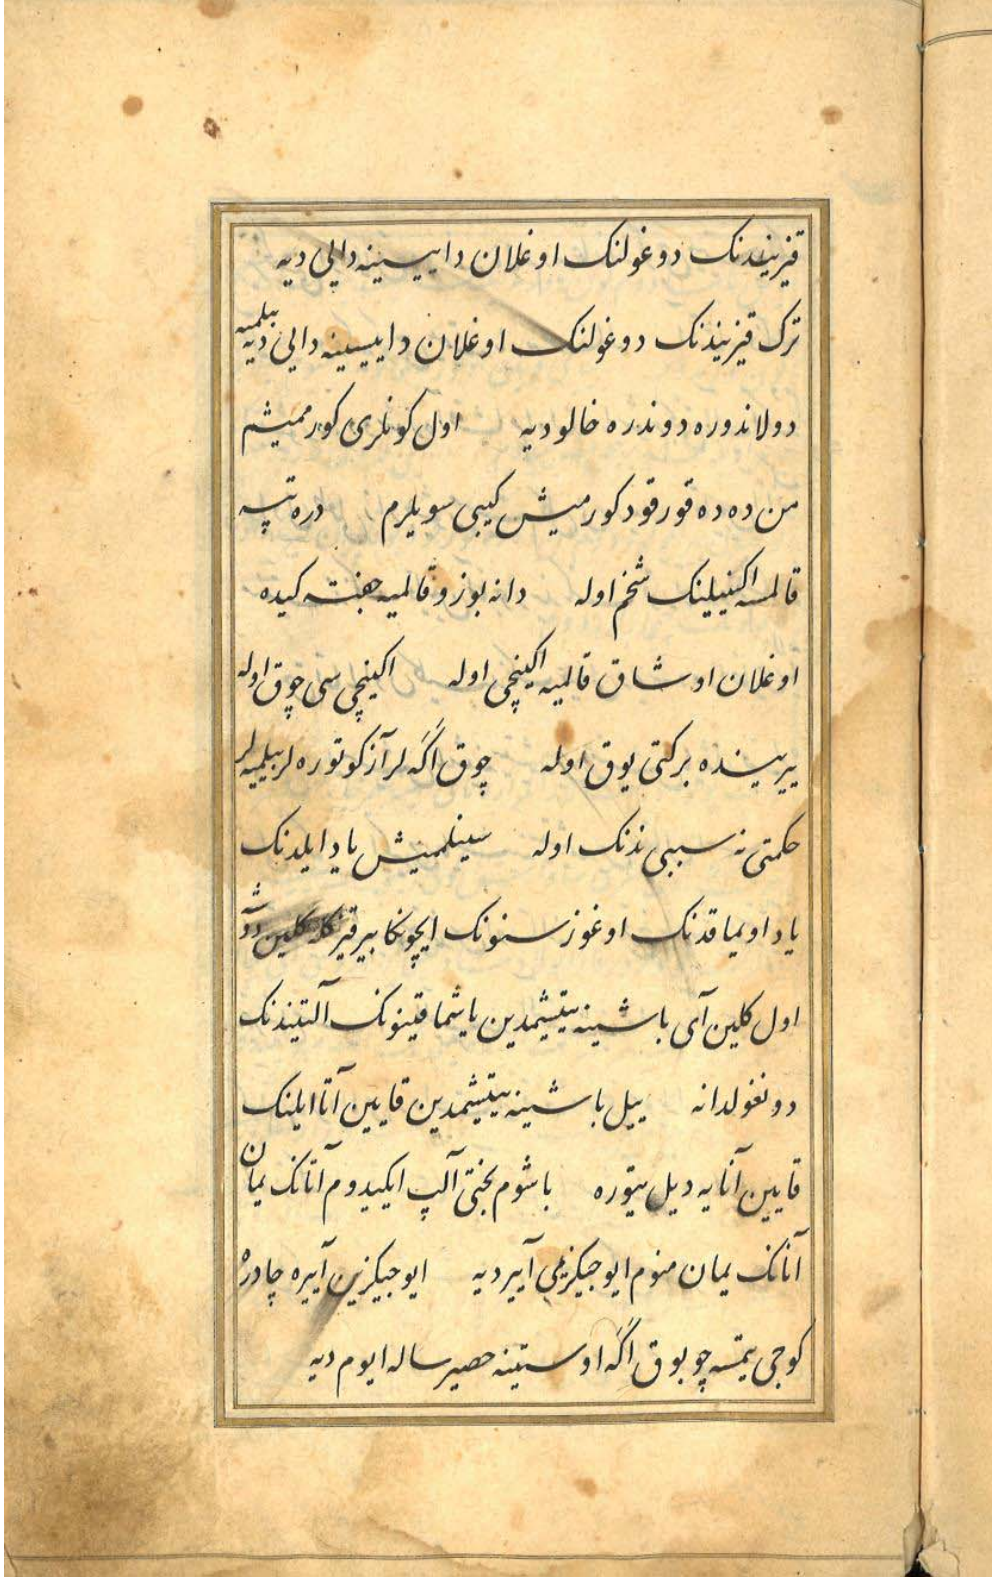 قیزیندنک دوغولنک اوغلان داییسینه دالی دیه
ترک قیزیندنک دوغولنک اوغلان داییسینه دالی دیه بیلمیه
دولاندوره دوندره خالو دیه اول کونلری کورممیشم
من ده ده قورقود کورمیش کیبی سویلرم دره تپه
قالمسه اکنیلینک شخم اوله دانه بوزو قالمیه جفته کیده
اوغلان اوشاق قالمیه اکینچی اوله اکینچی سی چوق اوله
ییرینده برکتی یوق اوله چوق اگه لر آز کوتوره لر بیلمیه لر
حکمتی نه سببی ندنک اوله سینلممیش یاد ایلدنک
یاد اویماقدنک اوغوز سنونک ایچونکا بیر قیز کلین دوشه
اول کلین آی باشینه یتیشمدین یاشماقینونک آلتیندنک
دونغولدانه ییل باشینه یتیشمدین قایین آتا ایلنک
قایین آنایه دیل یتوره باشوم بختی آلپ ایکیدوم آتانک یمان
آنانک یمان منوم ایوجیکزیمی آییر دیه ایوجیکزین آییره چادره
کوجی یتمسه چوبوق اگه اوستینه حصیر ساله ایوم دیه